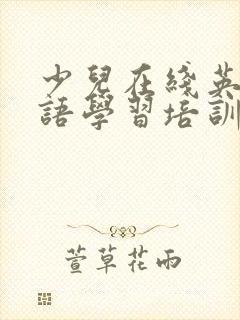 少兒在綫英
語學習培訓
萱草花雨